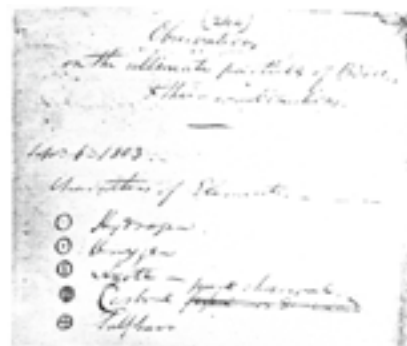 Observations
on the ultimate particles of Bodies
& their combinations.
6 1803
Characters of Elements
Hydrogen
Oxygen
Azote
Carbone
Sulphur